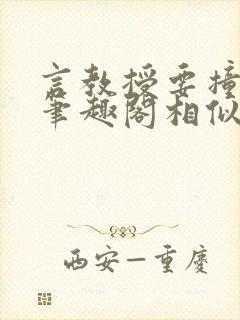 言教授要撞
笔趣阁相似
西安—重庆